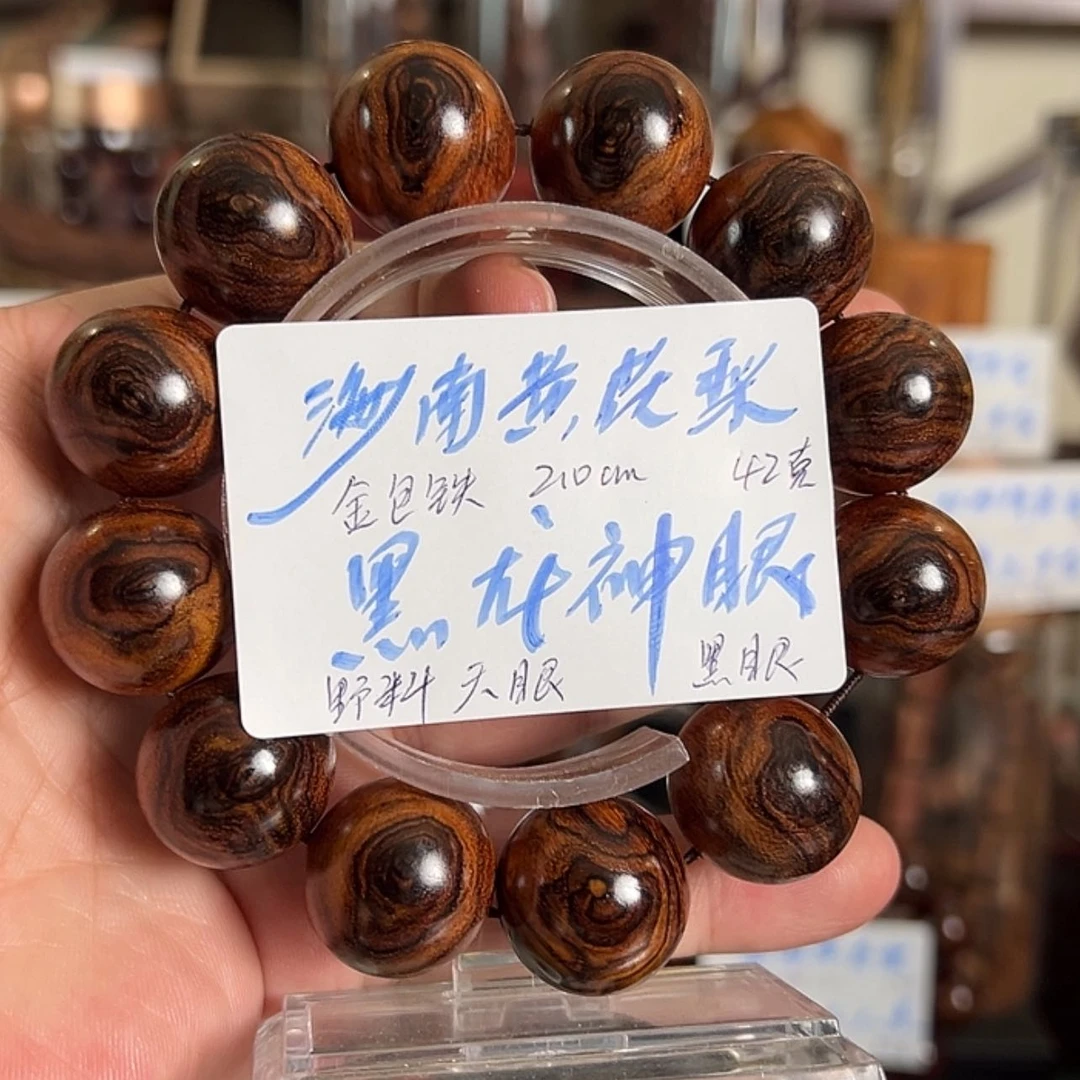 海南黄花梨
金包铁 210cm 42克
黑龙神眼
野料 天眼 黑眼